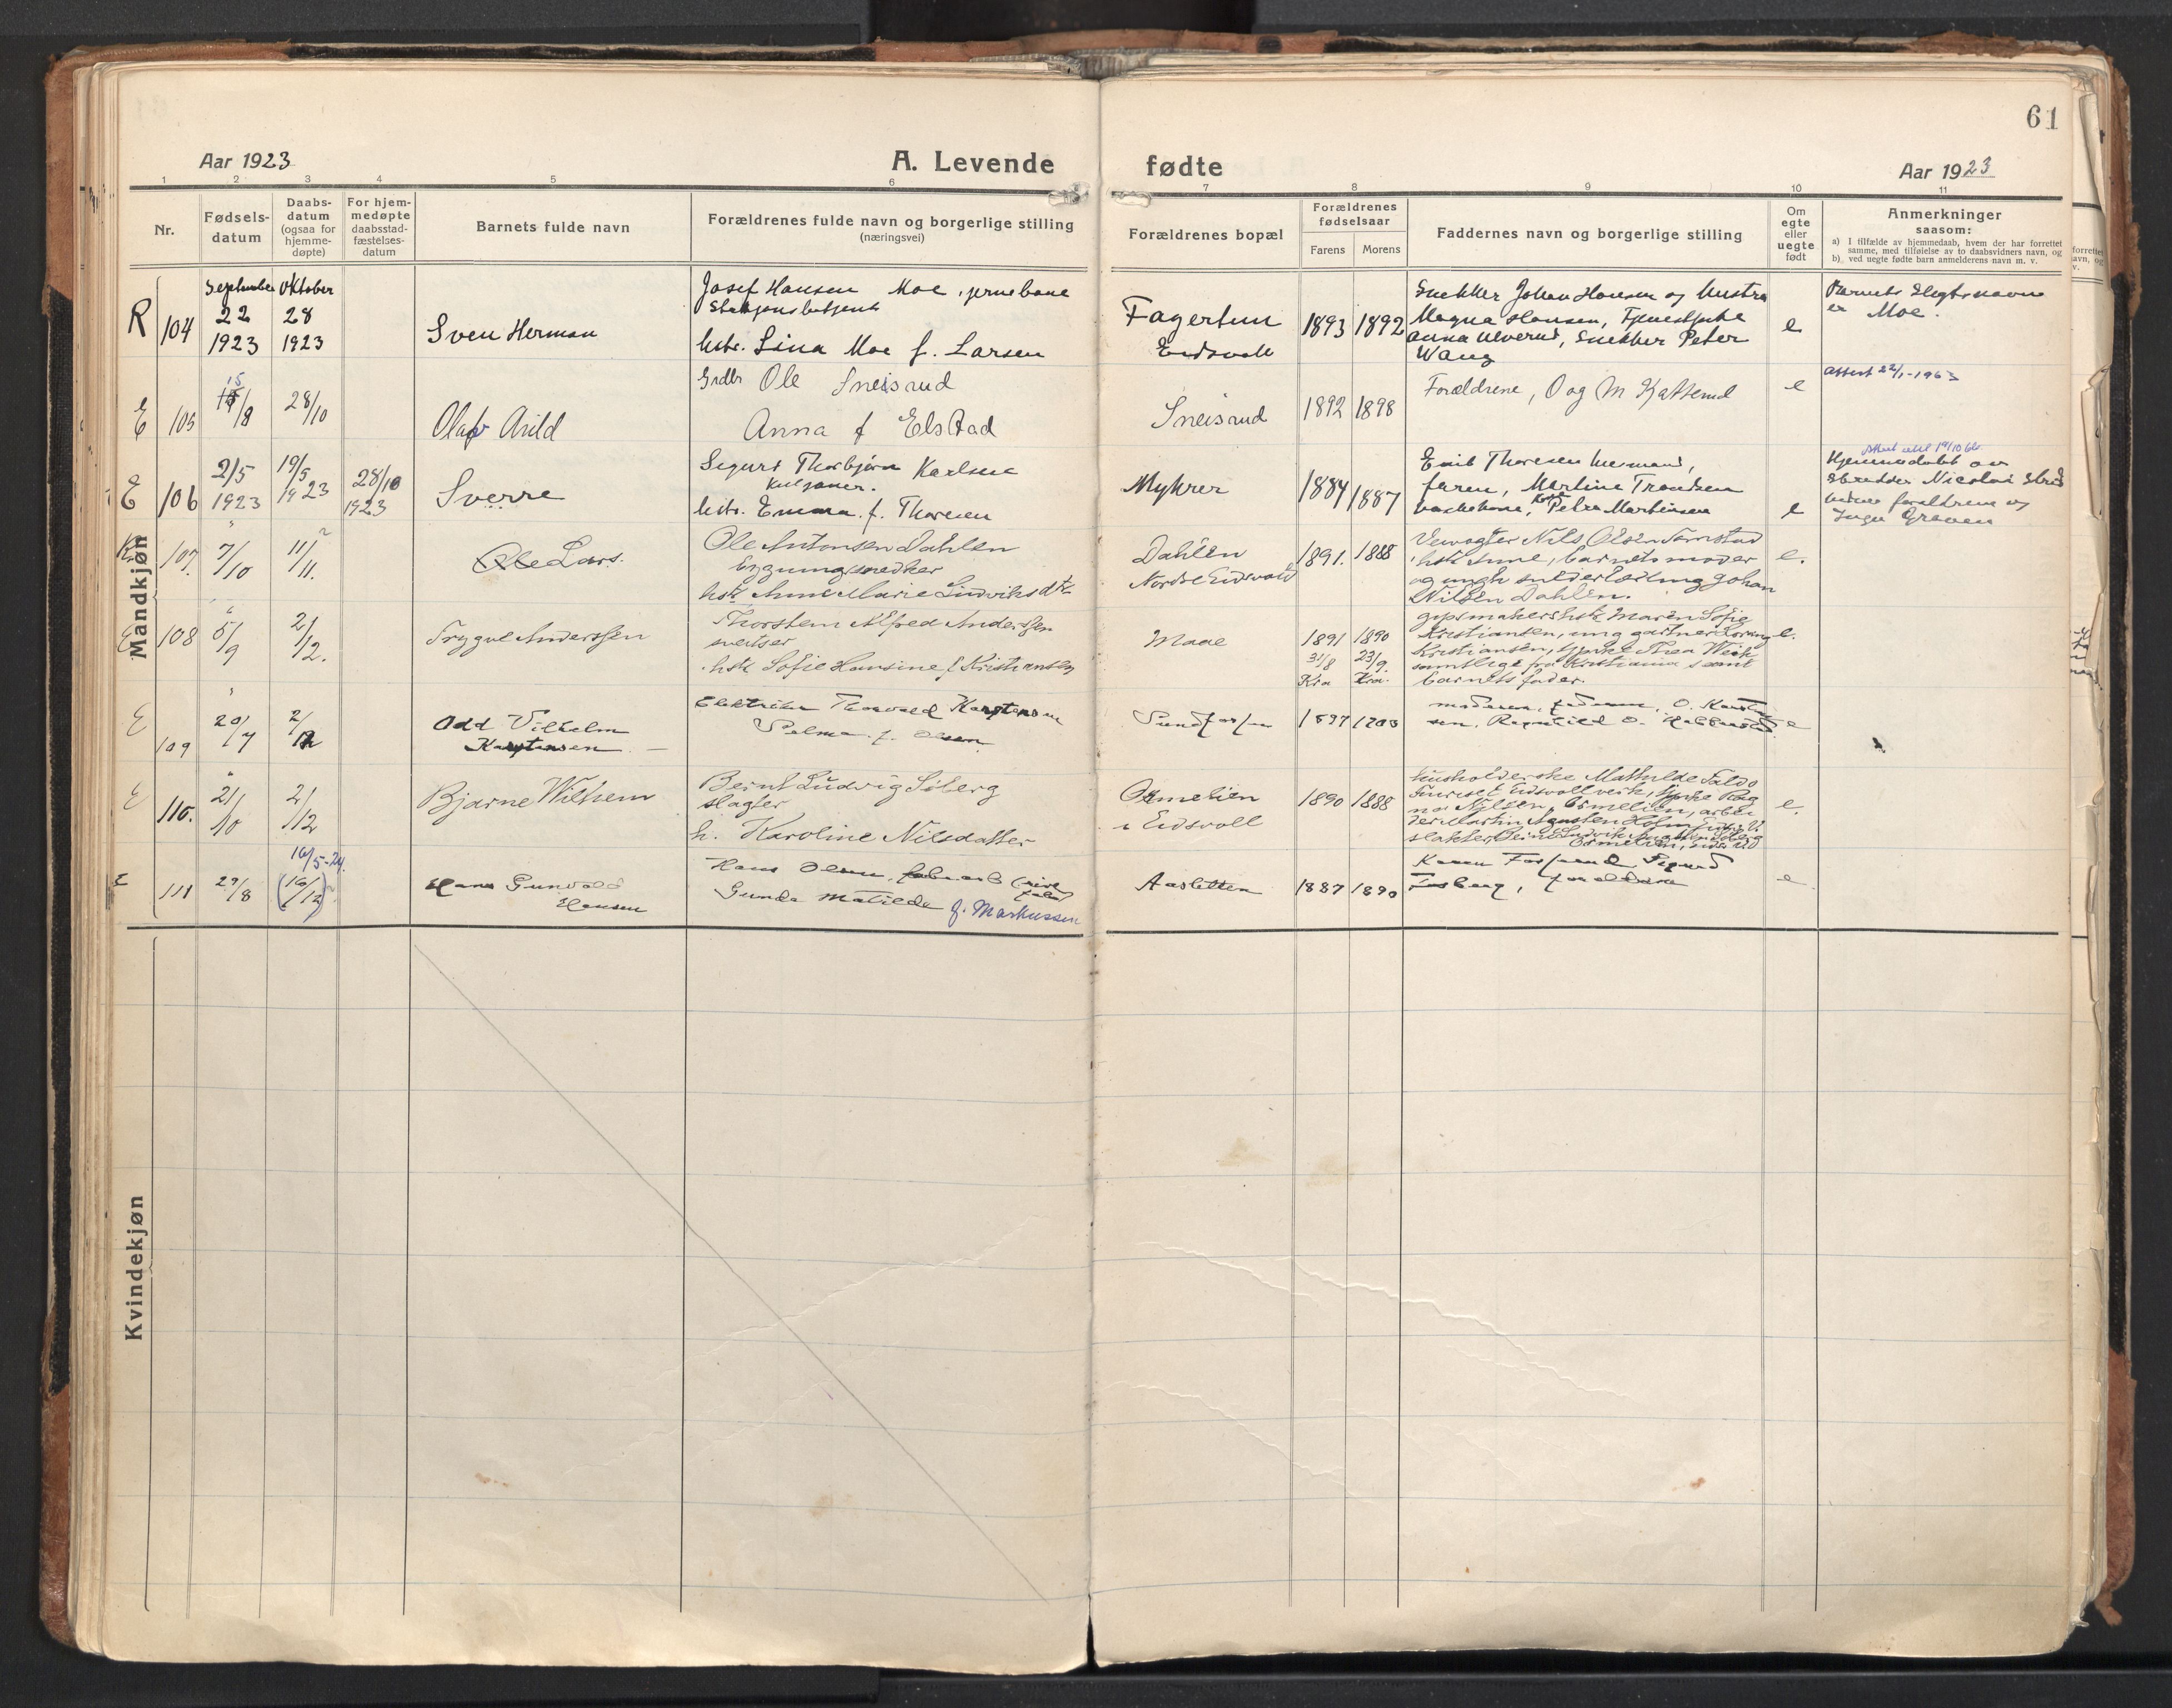 61
Aar 1923
A. Levende
fødte
Aar 1923
1 2 3 4 5 6 7 8 9 10 11
Nr.
Fødsels-
datum
Daabs-
datum
(ogsaa for
hjemme-
døpte)
For hjem-
medøpte
daabsstad-
fæstelses-
datum
Barnets fulde navn
Forældrenes fulde navn og borgerlige stilling
(næringsvei)
Forældrenes bopæl
Forældrenes
fødselsaar
Farens
Morens
Faddernes navn og borgerlige stilling
Om
egte
eller
uegte
født
Anmerkninger
saasom:
a) I tilfælde av hjemmedaab, hvem der har forrettet
samme, med tilføielse av to daabsvidners navn, og
b) ved uegte fødte barn anmelderens navn m. v.
Mandkjøn
R
104
September
22
1923
Oktober
28
1923
Sven Herman
Josef Hansen Moe, jernbane
Stasjonsbetjent
hstr. Lina Moe f. Larsen
Fagertun
Eidsvoll
1893
1892
Snekker Johan Hansen og hustru
Magna Hansen, Tjenestpike
Anna Ulverud, Snekker Peter
Wang
e
Barnets Slegtsnavn
er Moe.
E
105
15
/8
28/10
Olaf Arild
Grdbr Ole Sneisrud
Anna f Elstad
Sneisrud
1892
1898
Forældrene, O og M Katterud
e
Attest 22/1-1963
E
106
2/5
1923
19/5
1923
28/10
1923
Sverre
Sigurt Thorbjørn Karlsen
hstr. Emma f. Thoresen
Myhrer
1884
1887
Emil Thoresen
faren, Martine Trondsen
Petra Martinsen
e
Hjemmedøbt av
Skredder Nicolai
forældrene og
Inga Graven
107.
7/10
11/11.
Ole Lars.
Ole Antonsen Dahlen
bygningssnedker
hst. Anne Marie Ludviksdtr
Dahlen
Nordre Eidsvold
1891.
1888
Veivogter Nils Olsen
hst. Anne, barnets moder
og ungk. Johan
Nilsen Dahlen.
e.
E
108
5/9
2/12.
Trygve Anderssen
Thorstein Alfred Anderssen
hst. Sofie Hansine f. Kristiansen
Maae
1891
31/8
Kra
1890
23/9.
Kra.
gipsmakershst. Maren Sofie
Kristiansen, ung gartner
Kristiansen, Thea
samtlige fra Kristiania samt
barnets fader.
e.
E
109
20/7
2/12
Odd Vilhelm
Karstensen
Elektriker Thorvald Karstensen
Selma f. Olsen
Sundfossen
1897
moderen, faderen, O. Karsten
sen, Ragnhild O.
e
E
110.
21/10
2/12
Bjarne Wilhem
Bernt Ludvig Soberg
slagter
h. Karoline Nilsdatter
Ormelien
i Eidsvoll
1890
1888
husholderske Mathilde
Eidsvoll verk, pike Rag
na Nilsen, Ormelien, arbei
der Martin Agusten Holm
slakter Bernt Ludvik
Ormelien
e.
E
111
29/8
16/5-24.
(16/12)
Hans Gunvald
Hansen
Hans Olsen, fabr.arb
Gunda Matilde f. Markussen
Aasletten
1887
1890
Karen Sigurd
Fosberg, forældrene
e
Kvindekjøn